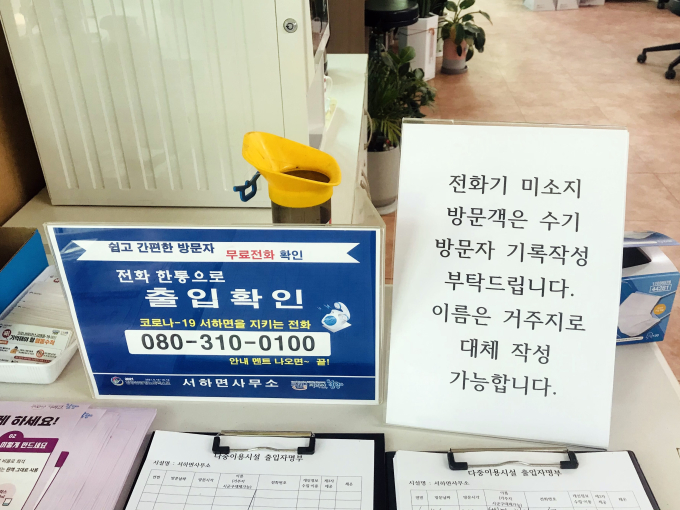 쉽고 간편한 방문자 무료전화 확인
전화 한통으로
출입확인
코로나-19 서하면을 지키는 전화
080-310-0100
안내 멘트 나오면~ 끝!
서하면사무소
전화기 미소지
방문객은 수기
방문자 기록작성
부탁드립니다.
이름은 거주지로
대체 작성
가능합니다.
께 하세요!
02
다중이용시설 출입자명부
시설명 : 서하면사무소
연번 방문날짜 방문시각
전화번호
다중이용시설 출입자명부
시설명 : 서하면사무소
연번 방문날짜 방문시각
전화번호